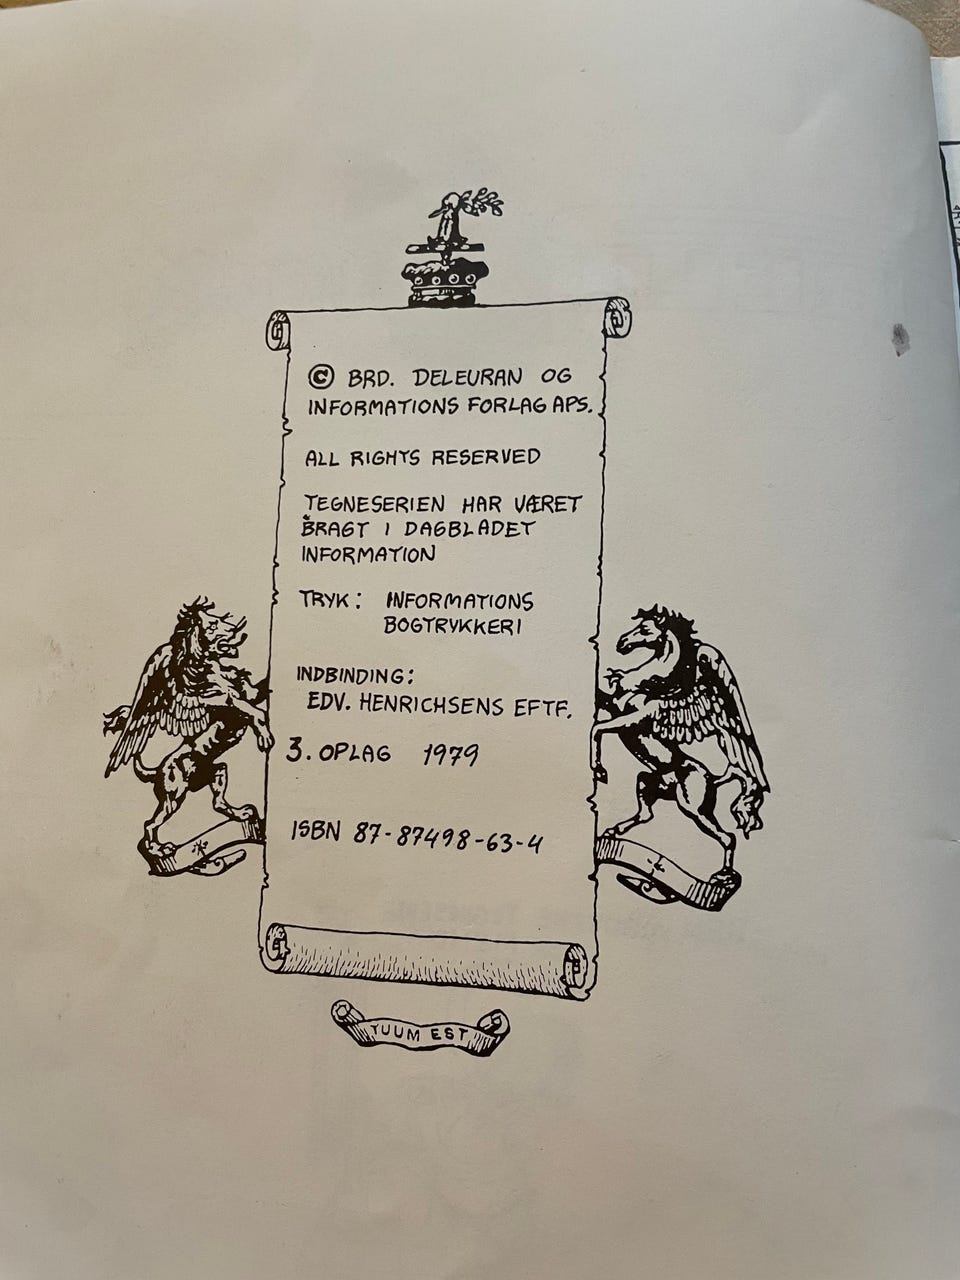 © BRD. DELEURAN OG
INFORMATIONS FORLAG APS.
ALL RIGHTS RESERVED
TEGNESERIEN HAR VÆRET
BRAGT I DAGBLADET
INFORMATION
TRYK: INFORMATIONS
BOGTRYKKERI
INDBINDING:
EDV. HENRICHSENS EFTF.
3. OPLAG 1979
ISBN 87-87498-63-4
TUUM EST